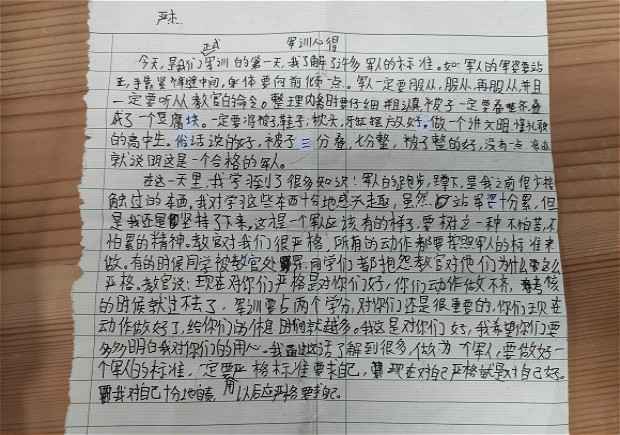 严杰
军训心得
今天,是我们正式军训的第一天,我了解了许多军人的标准。如:军人的军姿要站
正,手靠紧裤缝中间,身体要向前倾一点。军人一定要服从,服从,再服从并且
一定要听从教官的命令。整理内务时要仔细和认真被子一定要叠
成了一个豆腐块。一定将被子,鞋子,枕头,牙缸摆放好。做一个讲文明懂礼貌
的高中生。俗话说的好,被子三分叠,七分整,被子整的好,没有一点
就说明这是一个合格的军人。
在这一天里,我学到了很多知识!军人的跑步,蹲下,是我之前很少接
触过的东西。我对学习这些东西十分地感兴趣,虽然站军姿十分累,但
是我还是坚持了下来。这是一个军人应该有的样子,要树立一种不怕苦,不
怕累的精神。教官对我们很严格,所有的动作都要按照军人的标准来
做。有的时候同学被教官处罚,同学们都抱怨教官对他们为什么要这么
严格。教官说:现在对你们严格是对你们好,你们动作做不齐,考核
的时候就过不去了,军训要占两个学分,对你们还是很重要的,你们现在
动作做好了,给你们的休息时间就越多。我这是对你们好,我希望你们要
多多明白我对你们的用心。我从这话了解到很多,做为一个军人,要做好一
个军人的标准,一定要严格标准要求自己,现在对自己严格就是对自己好。
我对自己十分地自豪,以后应严格要求自己。